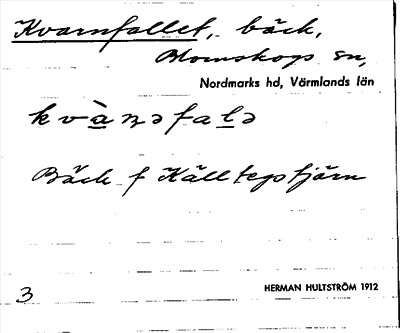 Kvarnfallet, bäck,
Blomskogs sn,
Nordmarks hd, Värmlands län
kvà̱ṇəfaḻə
Bäck f Källtegstjärn
3
HERMAN HULTSTRÖM 1912